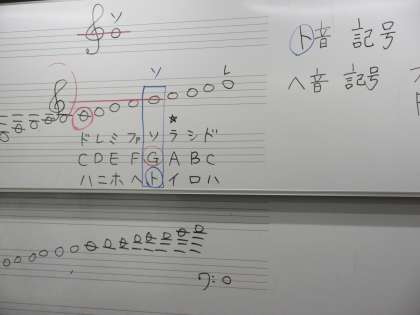 ソ
ト音記号
ソ
レ
ヘ音記号
ド レ ミ ファ ソ ラ シ ド
C D E F G A B C
ハ ニ ホ ヘ ト イ ロ ハ